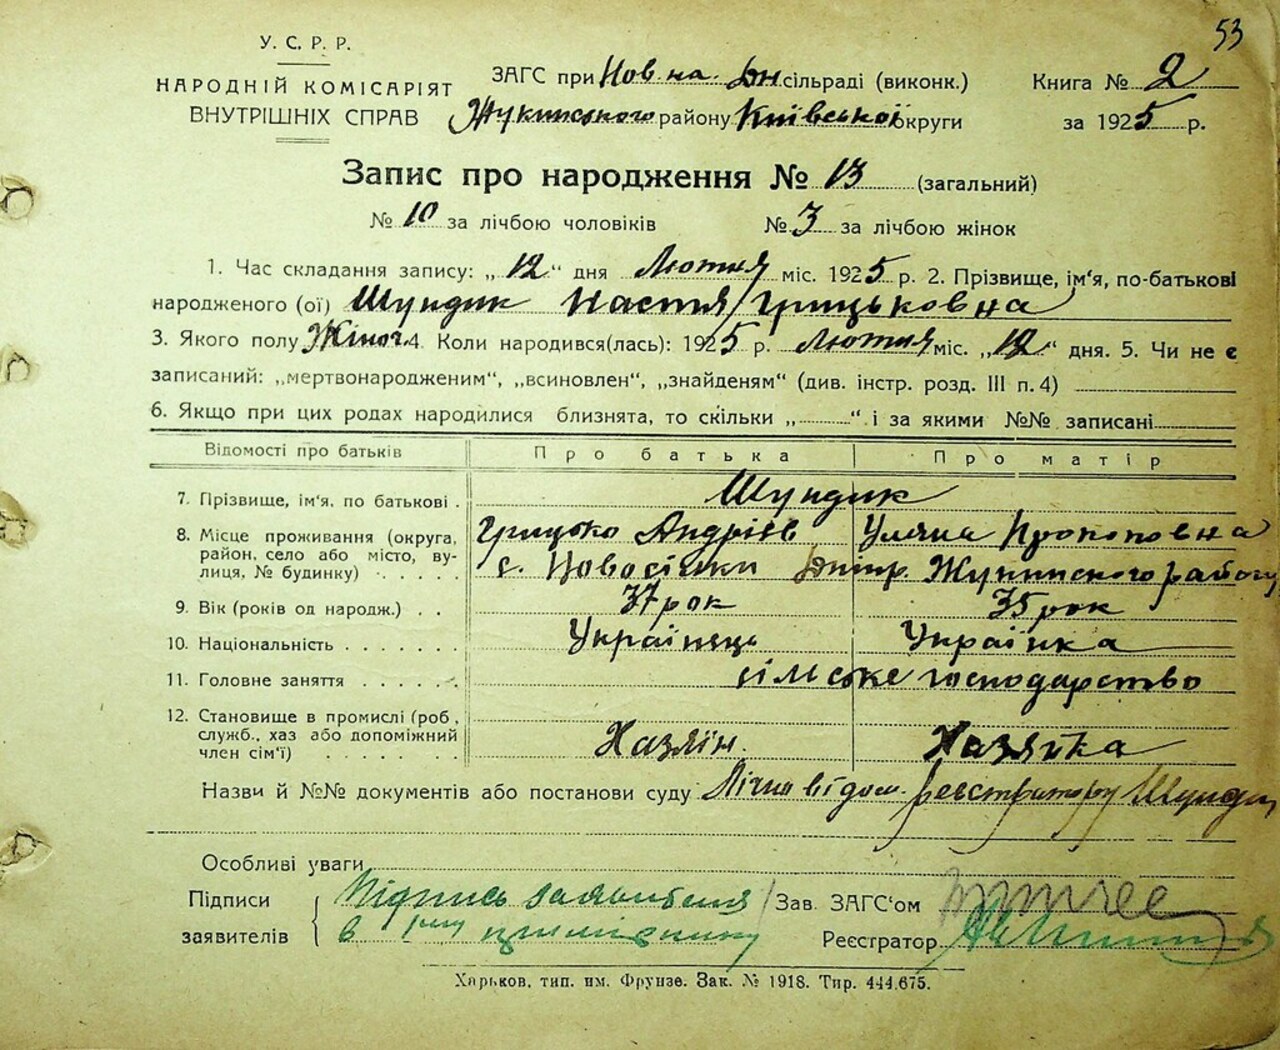 53
У. С. Р. Р.
НАРОДНІЙ КОМІСАРІЯТ
ВНУТРІШНІХ СПРАВ
ЗАГС при Нов. на. Дн сільраді (виконк.)
Жукинського району Київської округи
Книга № 2
за 1925 р.
Запис про народження № 13 (загальний)
№ 10 за лічбою чоловіків № 3 за лічбою жінок
1. Час складання запису: „12“ дня Лютня міс. 1925 р. 2. Прізвище, ім'я, по-батькові
народженого (ої) Шундик Настя Грицьковна
3. Якого полу Жіноч. 4. Коли народився(лась): 1925 р. Лютня міс. „12“ дня. 5. Чи не є
записаний: „мертвонародженим“, „всиновлен“, „знайденям“ (див. інстр. розд. III п. 4)
6. Якщо при цих родах народилися близнята, то скільки „ “ і за якими №№ записані
Відомості про батьків Про батька Про матір
7. Прізвище, ім'я, по батькові . Шундик
Грицько Андріів Уляна Прокоповна
8. Місце проживання (округа, район, село або місто, вулиця, № будинку) с. Новосілки Дніпр. Жукинского району
9. Вік (років од народж.) . . 37 рок 35 рок
10. Національність Українець Українка
11. Головне заняття сільське господарство
12. Становище в промислі (роб., служб., хаз або допоміжний член сім'ї) Хазяїн. Хазяйка
Назви й №№ документів або постанови суду Лічно відом. реєстратору Шундик
Особливі уваги
Підписи
заявителів
Підпись заявителя
в 1му примірнику
Зав. ЗАГС'ом
Реєстратор
Харьков, тип. им. Фрунзе. Зак. № 1918. Тир. 444.675.